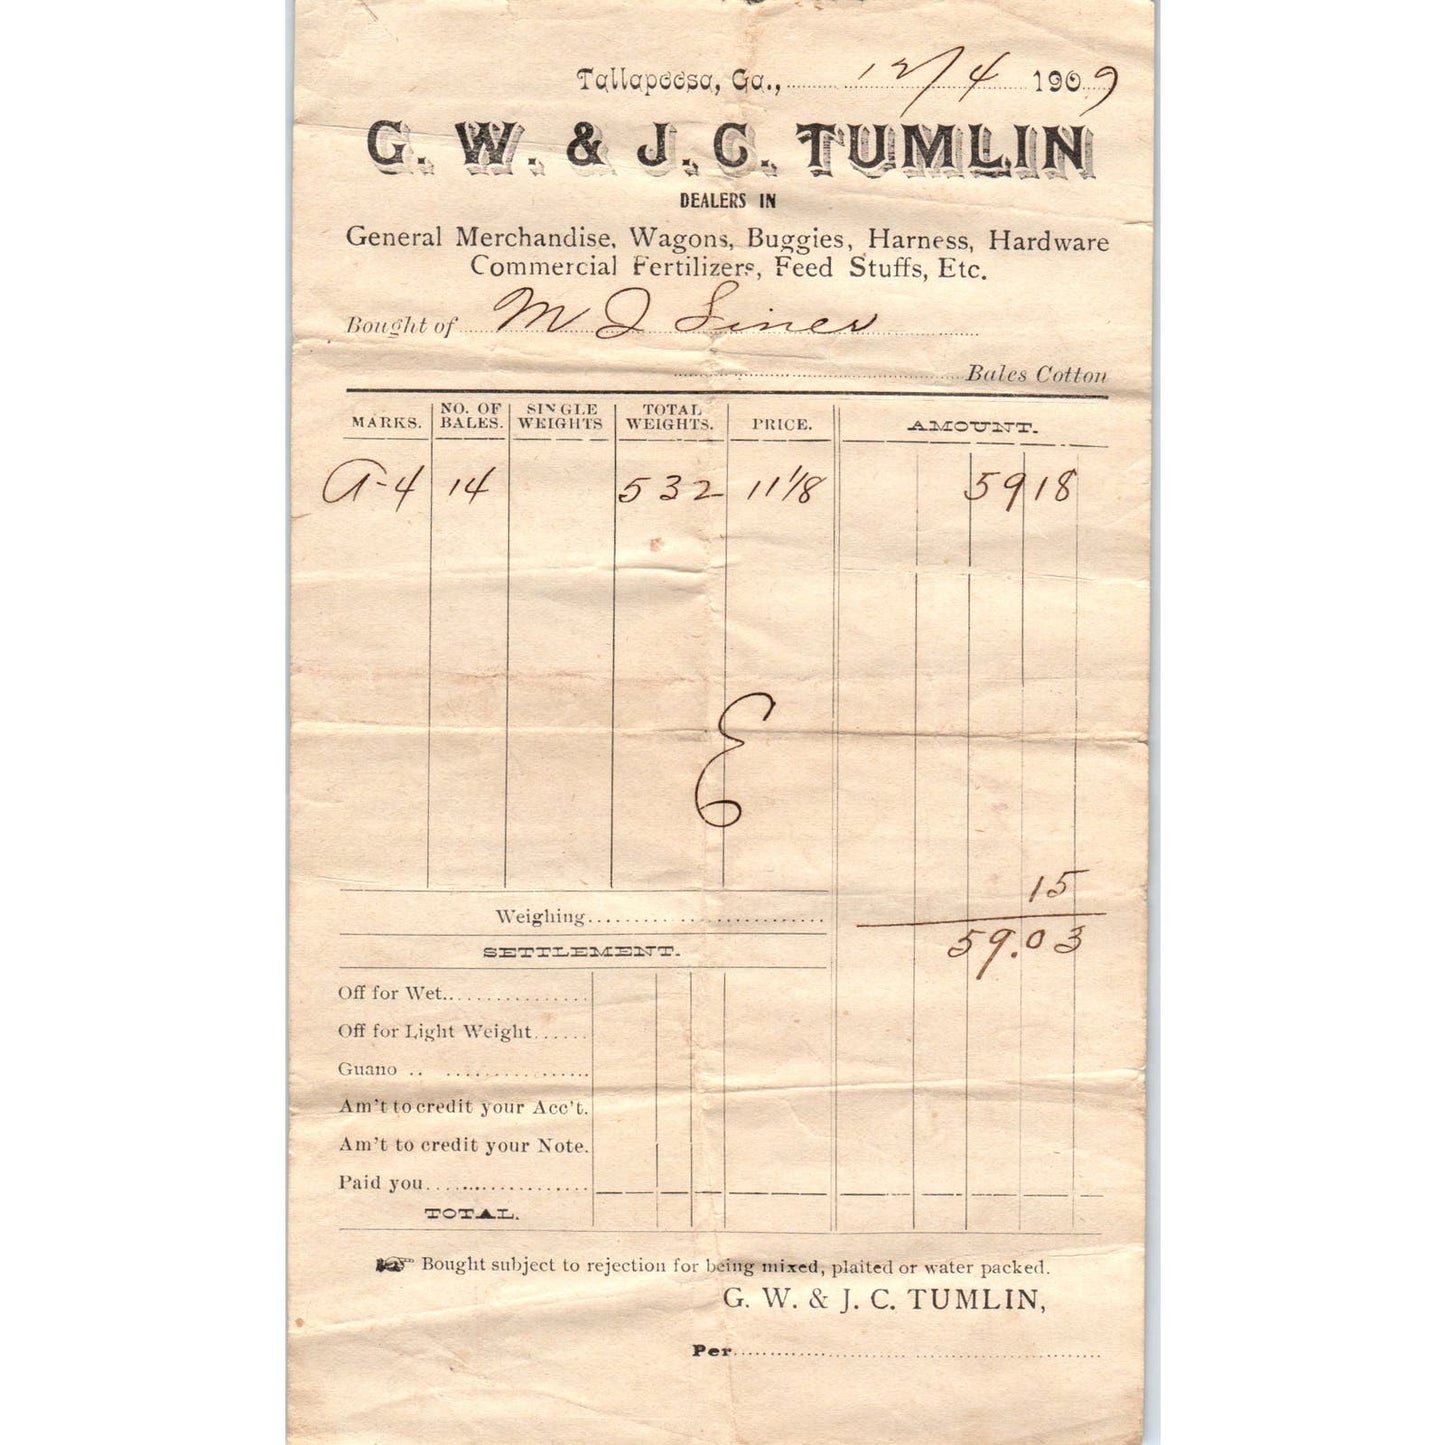 Tallapoosa, Ga., 12/4 1909
G. W. & J. C. TUMLIN
DEALERS IN
General Merchandise, Wagons, Buggies, Harness, Hardware
Commercial Fertilizers, Feed Stuffs, Etc.
Bought of M J Siner
Bales Cotton
MARKS. NO. OF BALES. SINGLE WEIGHTS TOTAL WEIGHTS. PRICE. AMOUNT.
A-4 14 532 11 1/8 59 18
E
15
Weighing
59.03
SETTLEMENT.
Off for Wet
Off for Light Weight
Guano
Am't to credit your Acc't.
Am't to credit your Note.
Paid you
TOTAL.
☞ Bought subject to rejection for being mixed, plaited or water packed.
G. W. & J. C. TUMLIN,
Per